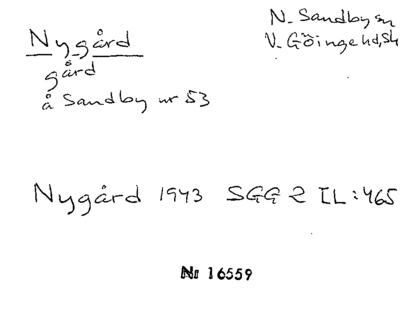 Nygård
N. Sandby sn
V. Göinge hd, Sk
gård
å Sandby nr 53
Nygård 1943 SGG 2 IL:465
Nr 16559